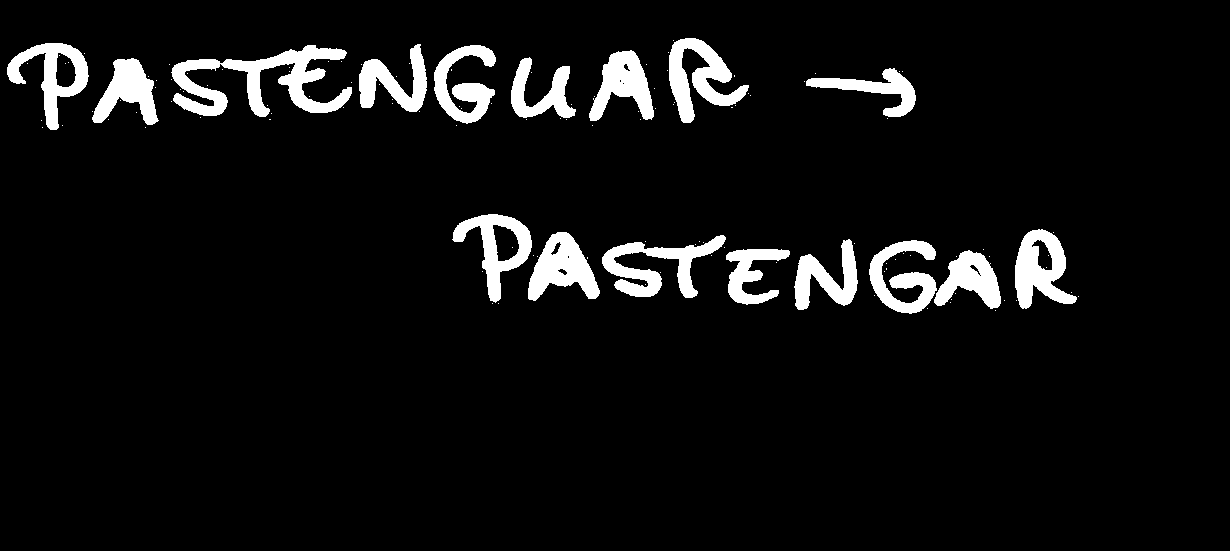 PASTENGUAR →
PASTENGAR